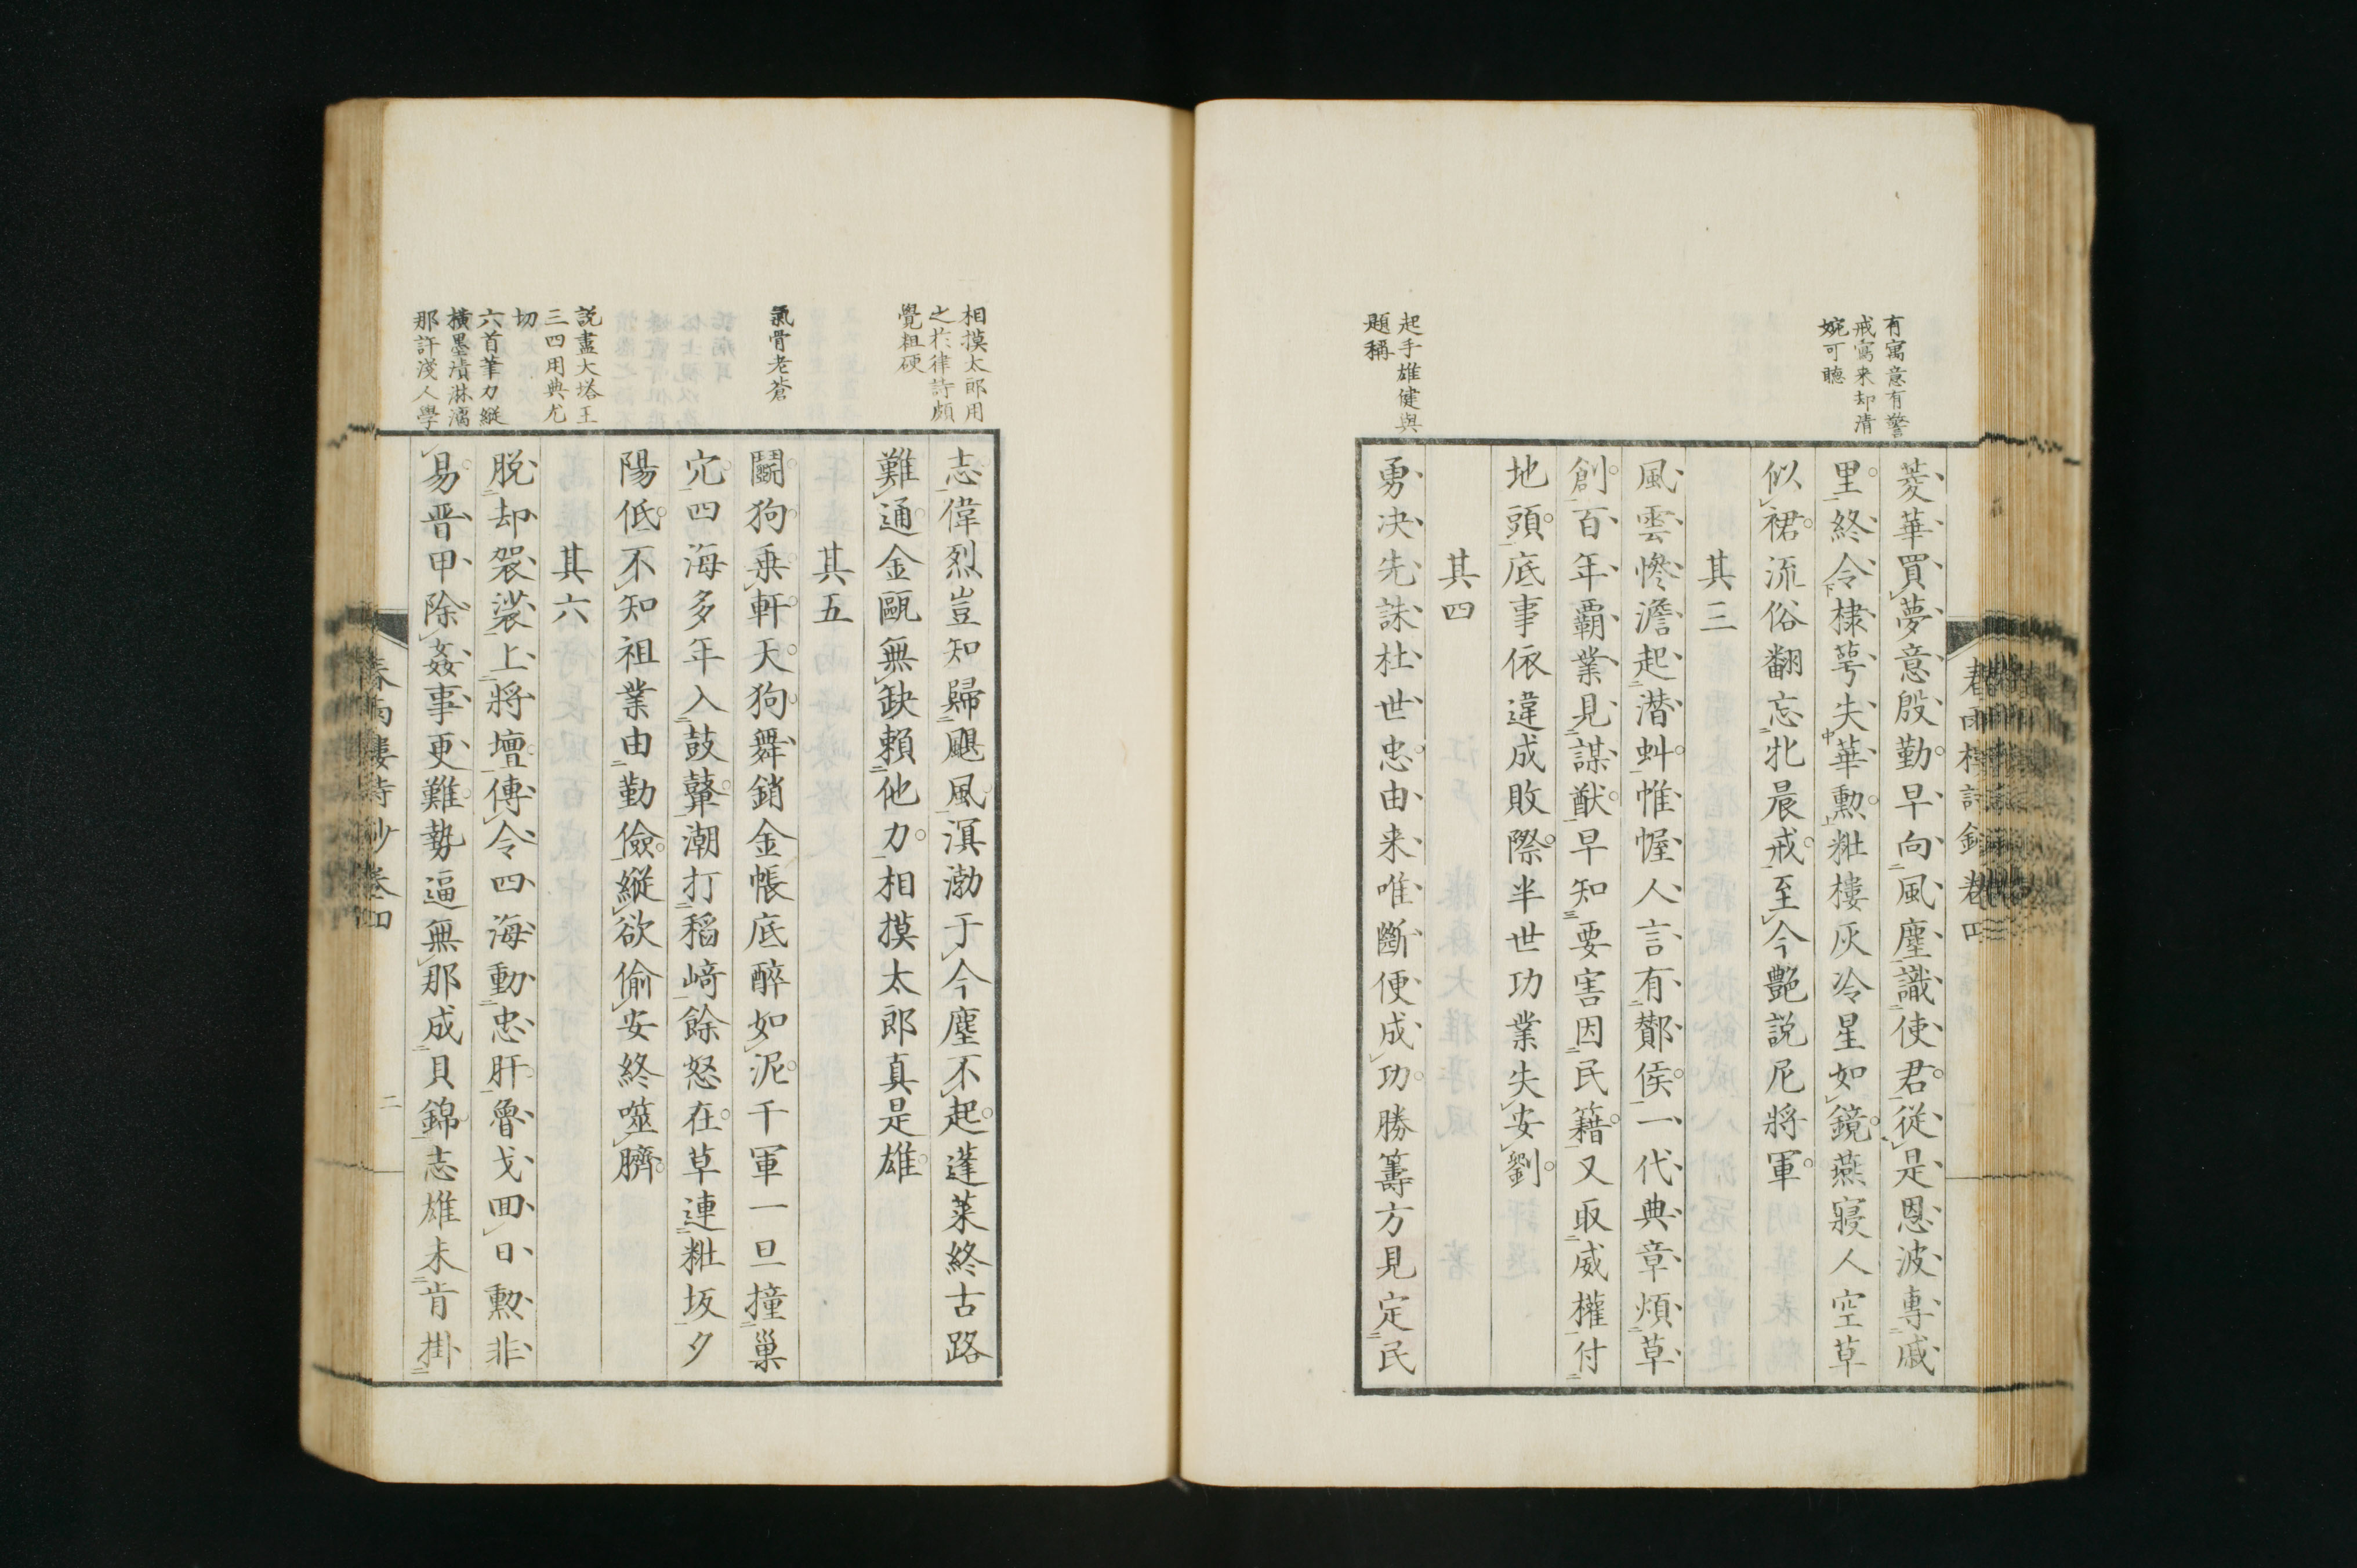 有寓意有警
戒寫来却清
婉可聴
菱華買夢意殷勤早向風塵識使君從是恩波專戚
里終令棣萼失華勲粧樓灰冷星如鏡燕寢人空草
似裙流俗翻忘牝晨戒至今艶説尼將軍
其三
風雲慘澹起潜虯惟幄人言有鄼侯一代典章煩草
創百年覇業見謀猷早知要害因民籍又取威權付
地頭底事依違成敗際半世功業失安劉
起手雄健與
題稱
其四
勇决先誅杜世忠由来唯斷便成功勝籌方見定民
相摸太郎用
之於律詩頗
覺粗硬
志偉烈豈知歸颶風溟渤于今塵不起蓬莱終古路
難通金甌無缺頼他力相摸太郎真是雄
其五
氣骨老蒼
鬭狗乗軒天狗舞銷金帳底醉如泥千軍一旦撞巢
穴四海多年入鼓鼙潮打稻﨑餘怒在草連粧坂夕
陽低不知祖業由勤儉縦欲偷安終噬臍
其六
説盡大塔王
三四用典尤
切
六首筆力縦
横墨瀆淋漓
那許淺人學
脱却袈裟上將壇傳令四海動忠肝魯戈回日勲非
易晋甲除姦事更難勢逼無那成貝錦志雄未肯掛
春雨樓詩鈔卷四
二